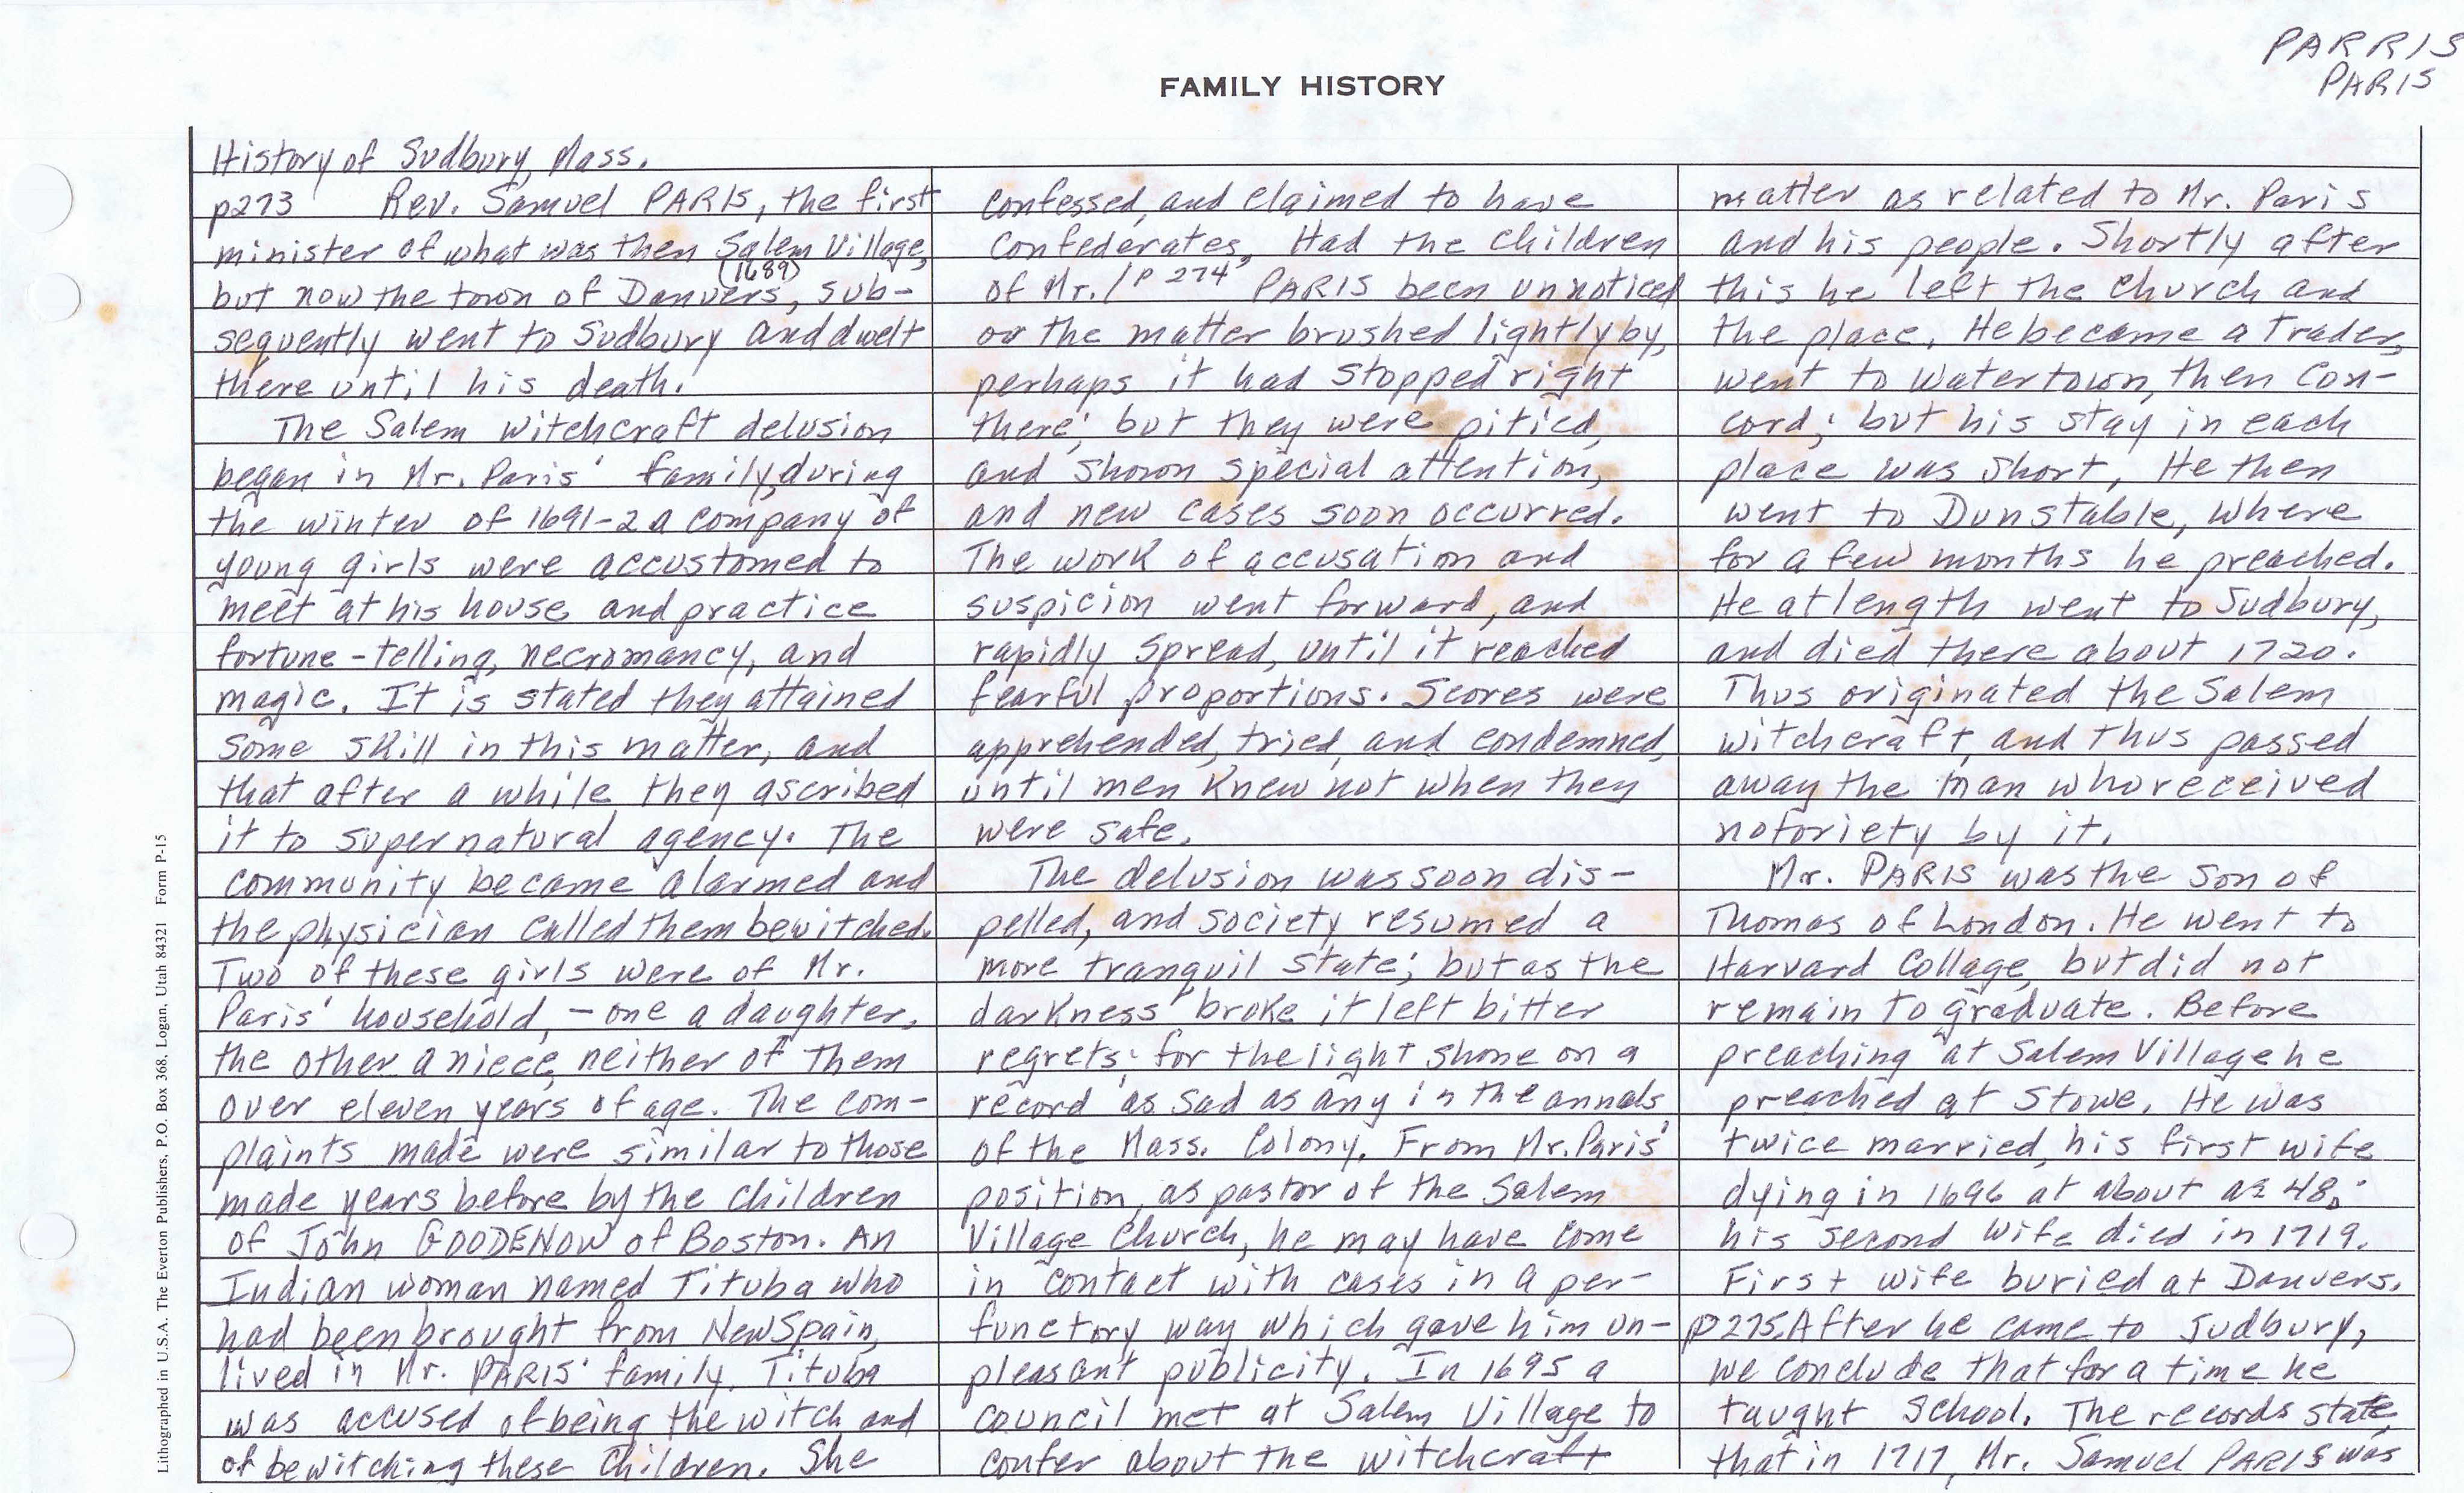 PARRIS
PARIS
FAMILY HISTORY
History of Sudbury, Mass.
p273 Rev. Samuel PARIS, the first
minister of what was then Salem Village,
(1689)
but now the town of Danvers, sub-
sequently went to Sudbury and dwelt
there until his death.
The Salem witchcraft delusion
began in Mr. Paris' family, during
the winter of 1691-2 a company of
young girls were accustomed to
meet at his house and practice
fortune-telling, necromancy, and
magic. It is stated they attained
some skill in this matter, and
that after a while they ascribed
it to supernatural agency. The
community became alarmed and
the physician called them bewitched.
Two of these girls were of Mr.
Paris' household, - one a daughter,
the other a niece, neither of them
over eleven years of age. The com-
plaints made were similar to those
made years before by the children
of John GOODENOW of Boston. An
Indian woman named Tituba who
had been brought from New Spain,
lived in Mr. PARIS' family. Tituba
was accused of being the witch and
of bewitching these Children. She
confessed, and claimed to have
confederates, Had the children
of Mr. /p 274 PARIS been unnoticed
or the matter brushed lightly by,
perhaps it had stopped right
there; but they were pitied,
and shown special attention,
and new cases soon occurred.
The work of accusation and
suspicion went forward, and
rapidly spread, until it reached
fearful proportions. Scores were
apprehended, tried, and condemned,
until men knew not when they
were safe.
The delusion was soon dis-
pelled, and society resumed a
more tranquil state; but as the
darkness broke it left bitter
regrets; for the light shone on a
record as sad as any in the annals
of the Mass. Colony. From Mr. Paris'
position, as pastor of the Salem
Village Church, he may have come
in contact with cases in a per-
functory way which gave him un-
pleasant publicity. In 1695 a
council met at Salem Village to
confer about the witchcraft
matter as related to Mr. Paris
and his people. Shortly after
this he left the church and
the place. He became a Trader,
went to Watertown, then Con-
cord; but his stay in each
place was short, He then
went to Dunstable, where
for a few months he preached.
He at length went to Sudbury,
and died there about 1720.
Thus originated the Salem
witchcraft, and thus passed
away the man who received
notoriety by it.
Mr. PARIS was the son of
Thomas of London. He went to
Harvard Collage, but did not
remain to graduate. Before
preaching at Salem Village he
preached at Stowe. He was
twice married, his first wife
dying in 1696 at about ae 48;
his second wife died in 1719.
First wife buried at Danvers.
p275. After he came to Sudbury,
we conclude that for a time he
taught school. The records state,
that in 1717, Mr. Samuel PARIS was
Lithographed in U.S.A. The Everton Publishers, P.O. Box 368, Logan, Utah 84321 Form P-15